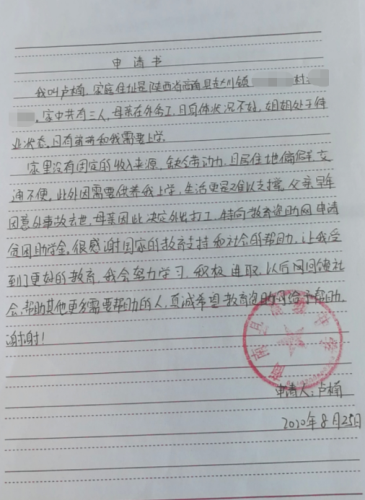 申请书
我叫卢楠,家庭住址是陕西省商南县赵川镇 村
家中共有三人,母亲在外务工,且身体状况不好,姐姐处于待
业状态,且有 和我需要上学。
家里没有固定的收入来源,缺乏劳动力,且居住地偏僻,交
通不便,此外因需要供养我上学,生活更是难以支撑,父亲早年
因意外事故去世,母亲因此决定外出打工,特向教育资助网申请
贫困助学金,很感谢国家的教育支持和社会的帮助,让我受
到了更好的教育,我会努力学习,积极进取,以后回馈社
会,帮助其他更多需要帮助的人,真诚希望教育资助 给予帮助,
谢谢!
申请人:卢楠
2020年8月25日